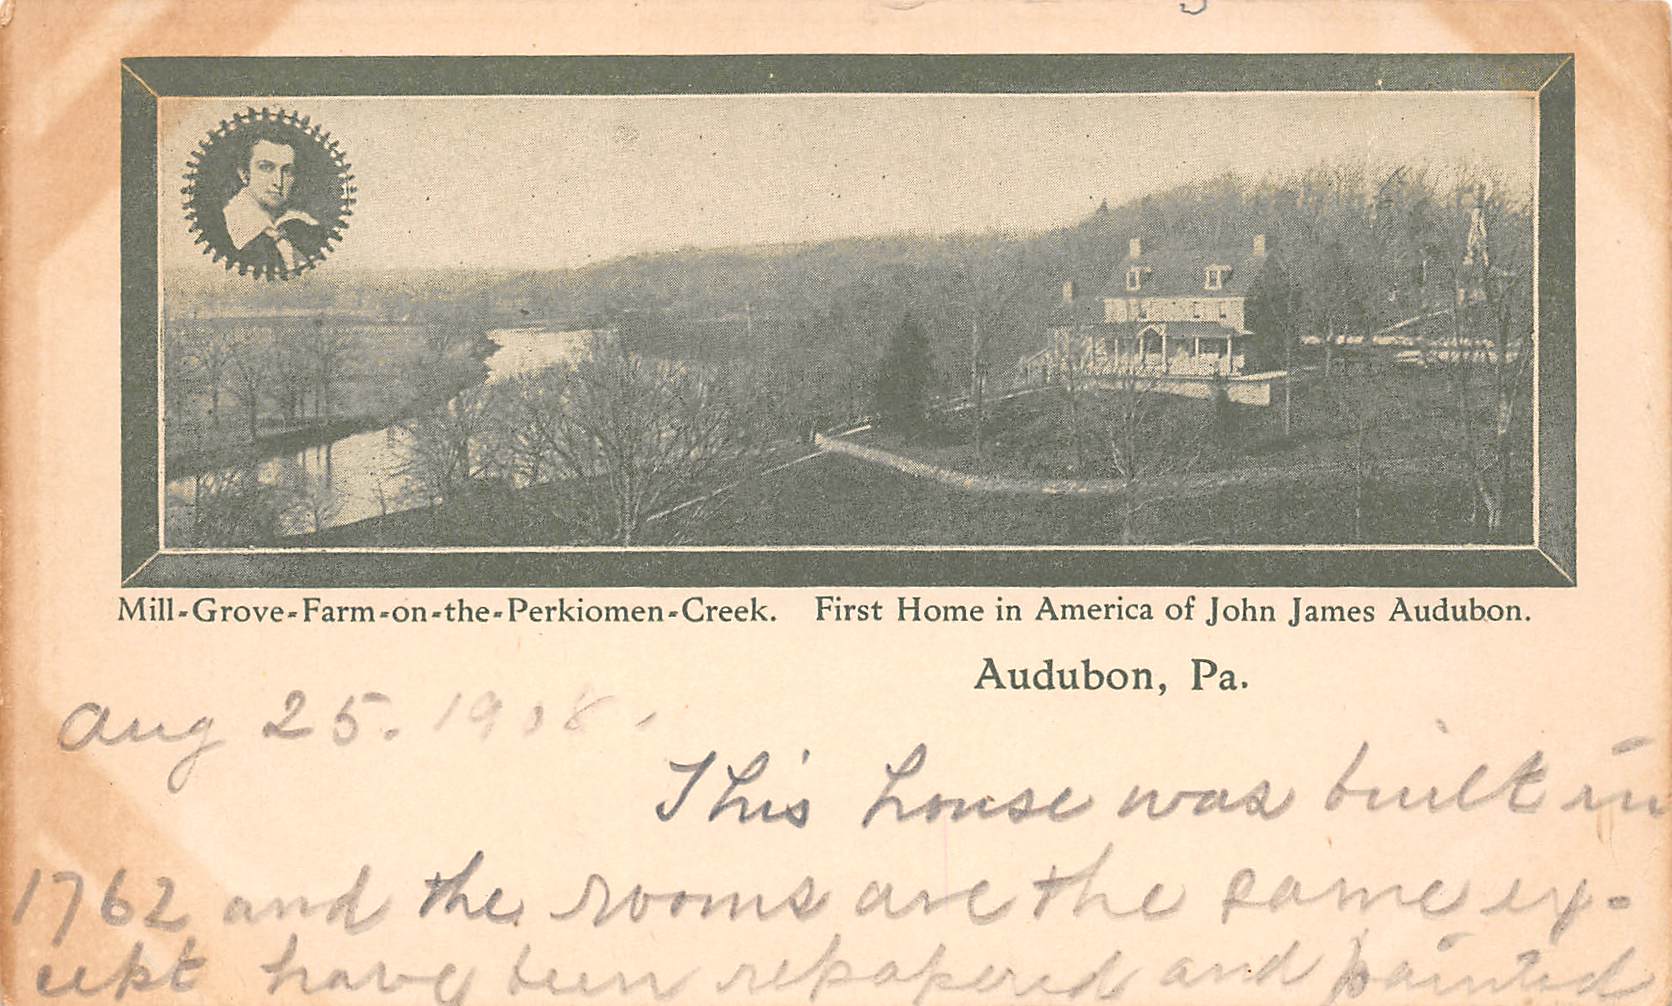 Mill-Grove-Farm-on-the-Perkiomen-Creek. First Home in America of John James Audubon.
Audubon, Pa.
Aug 25. 1908.
This house was built in
1762 and the rooms are the same ex-
cept have been repapered and painted